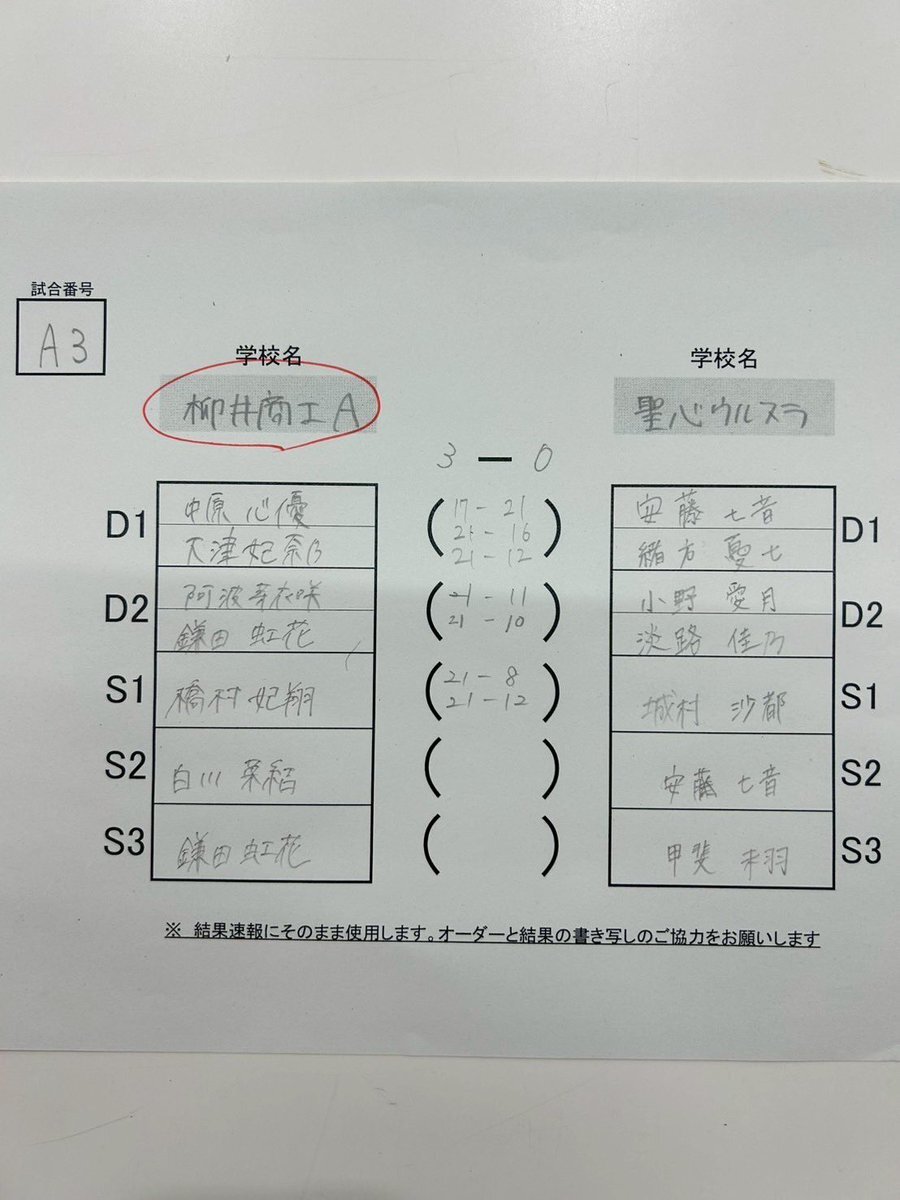 試合番号
A3
学校名
柳井商工A
学校名
聖心ウルスラ
3 — 0
D1
中原 心優
大津妃奈乃
(17 - 21
21 - 16
21 - 12)
安藤 七音
緒方 聖七
D1
D2
阿波芽衣咲
鎌田 虹花
(21 - 11
21 - 10)
小野 愛月
淡路 佳乃
D2
S1
橋村 妃翔
(21 - 8
21 - 12)
城村 沙都
S1
S2
白川 菜結
( )
安藤 七音
S2
S3
鎌田 虹花
( )
甲斐 未羽
S3
※ 結果速報にそのまま使用します。オーダーと結果の書き写しのご協力をお願いします